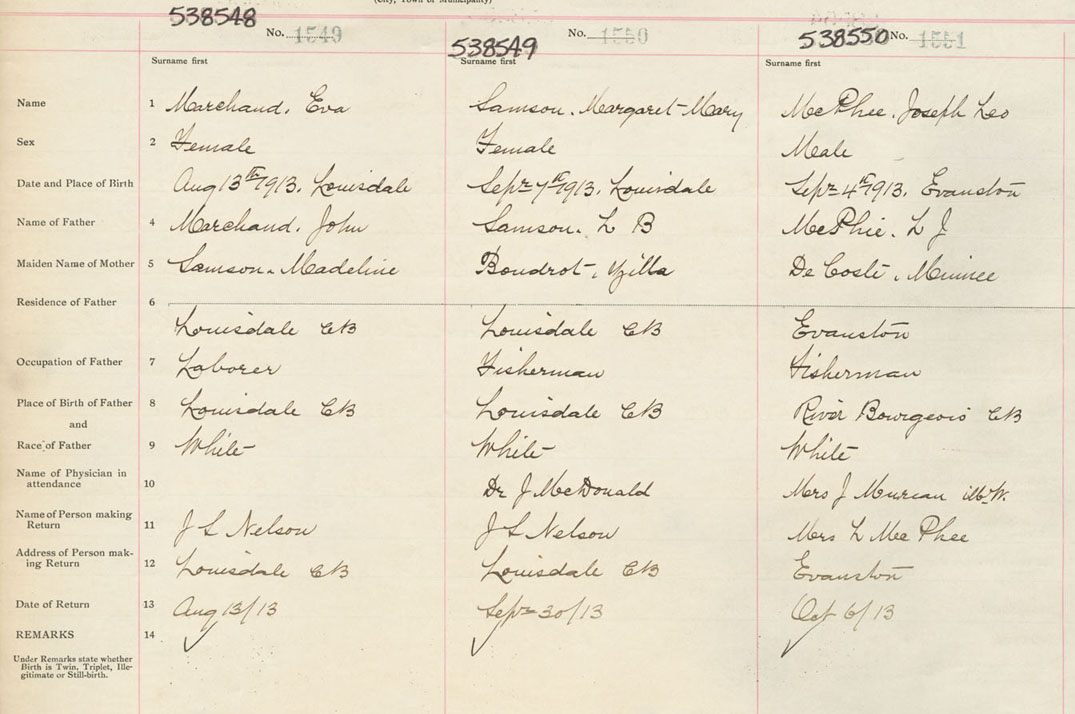 (City, Town or Municipality)
538548 No. 1549
538549 No. 1550
538550 No. 1551
Surname first Surname first Surname first
Name 1 Marchand, Eva Samson, Margaret Mary McPhee, Joseph Leo
Sex 2 Female Female Meale
Date and Place of Birth 3 Aug 13th 1913. Louisdale Sept 7th 1913. Louisdale Sept 4th 1913. Evanston
Name of Father 4 Marchand, John Samson, L B McPhie, L J
Maiden Name of Mother 5 Samson, Madeline Boudrot, De Coste,
Residence of Father 6
Louisdale CB Louisdale CB Evanston
Occupation of Father 7 Laborer Fisherman Fisherman
Place of Birth of Father 8 Louisdale CB Louisdale CB River Bourgeois CB
and
Race of Father 9 White White White
Name of Physician in
attendance 10 Dr J McDonald Mrs J
Name of Person making
Return 11 J S Nelson J S Nelson Mrs L McPhee
Address of Person mak-
ing Return 12 Louisdale CB Louisdale CB Evanston
Date of Return 13 Aug 13/13 Sept 30/13 Oct 6/13
REMARKS 14
Under Remarks state whether
Birth is Twin, Triplet, Ille-
gitimate or Still-birth.